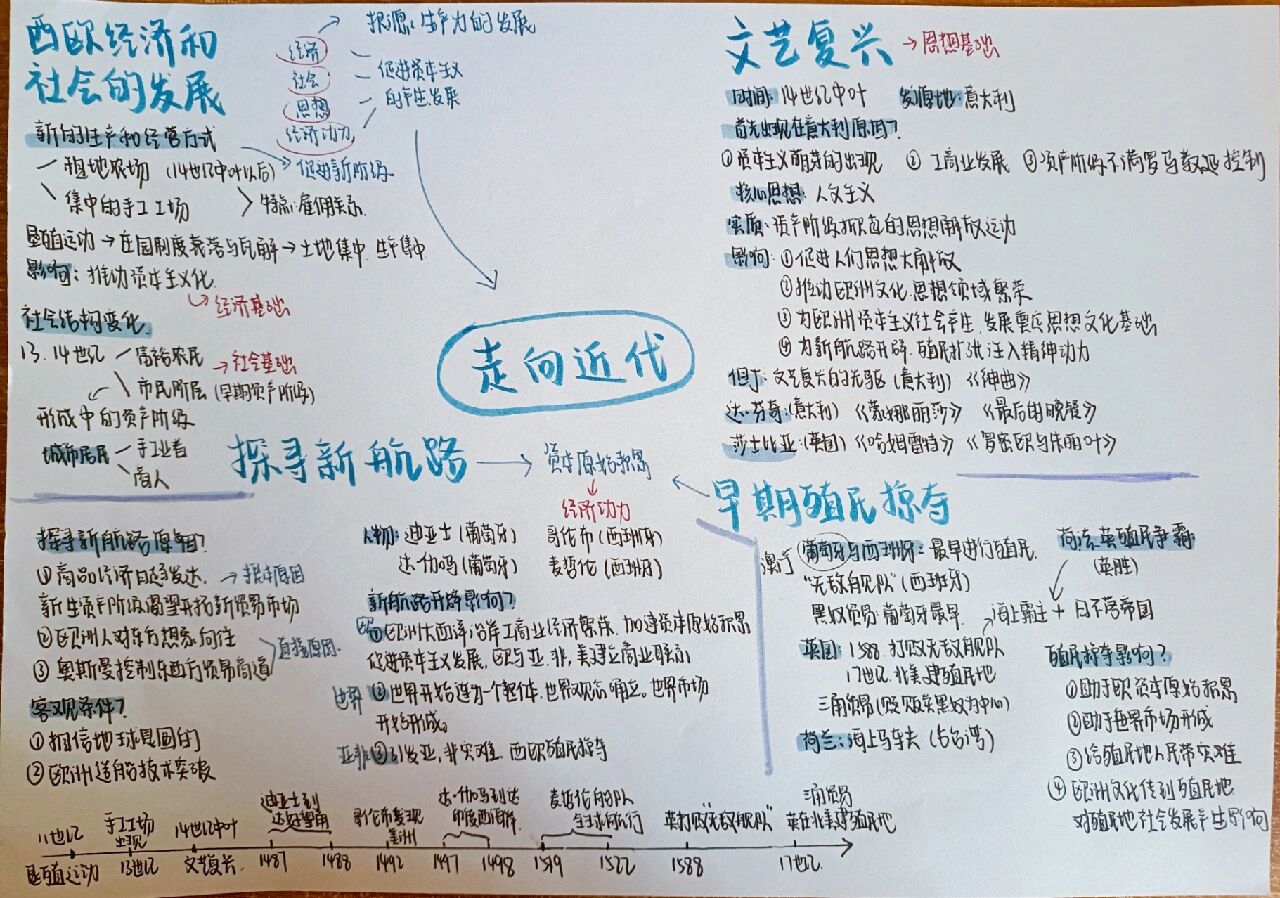 西欧经济和
社会的发展
探源:生产力的发展
经济
社会
思想
经济动力
促进资本主义
的产生发展
新的生产和经营方式
租地农场(14世纪中叶以后)
促进新阶级
集中的手工工场
特点:雇佣关系
垦殖运动→庄园制度衰落与瓦解→土地集中.生产集中
影响:推动资本主义化
经济基础
社会结构变化
13.14世纪
富裕农民
→社会基础
市民阶层(早期资产阶级)
形成中的资产阶级
城市居民
手工业者
商人
走向近代
文艺复兴
→思想基础
时间:14世纪中叶 发源地:意大利
首先出现在意大利原因?
①资本主义萌芽的出现 ②工商业发展 ③资产阶级不满罗马教廷控制
核心思想:人文主义
实质:资产阶级掀起的思想解放运动
影响:①促进人们思想大解放
②推动欧洲文化.思想领域繁荣
③为欧洲资本主义社会产生.发展奠定思想文化基础
④为新航路开辟.殖民扩张注入精神动力
但丁:文艺复兴的先驱(意大利)《神曲》
达·芬奇:(意大利)《蒙娜丽莎》《最后的晚餐》
莎士比亚:(英国)《哈姆雷特》《罗密欧与朱丽叶》
探寻新航路
资本原始积累
经济动力
探寻新航路原因?
①商品经济日趋发达.→根本原因
新生资产阶级渴望开拓新贸易市场
②欧洲人对东方想象向往
③奥斯曼控制东西方贸易商道
直接原因
客观条件?
①相信地球是圆的
②欧洲造船技术突破
人物:迪亚士(葡萄牙) 哥伦布(西班牙)
达·伽马(葡萄牙) 麦哲伦(西班牙)
新航路开辟影响?
欧①欧洲大西洋沿岸工商业经济繁荣,加速资本原始积累
促进资本主义发展,欧与亚.非.美建立商业联系
世界②世界开始连为一个整体.世界观念确立。世界市场
开始形成。
亚非③引发亚.非灾难.西欧殖民掠夺
早期殖民掠夺
澳门
葡萄牙与西班牙:最早进行殖民.
“无敌舰队”(西班牙)
黑奴贸易:葡萄牙最早
英国:1588.打败无敌舰队
17世纪.北美建殖民地
三角贸易(贩卖黑奴为中心)
荷兰:海上马车夫(占台湾)
荷.法.英殖民争霸
(英胜)
海上霸主+日不落帝国
殖民掠夺影响?
①助于欧资本原始积累
②助于世界市场形成
③给殖民地人民带灾难
④欧洲文化传到殖民地
对殖民地社会发展产生影响
11世纪
垦殖运动
手工工场
出现
13世纪
14世纪中叶
文艺复兴
迪亚士到
达好望角
1487
1488
哥伦布发现
美洲
1492
达·伽马到达
印度西海岸
1497
1498
麦哲伦船队
全球航行
1519
1522
英打败“无敌舰队”
1588
三角贸易
英在北美建殖民地
17世纪